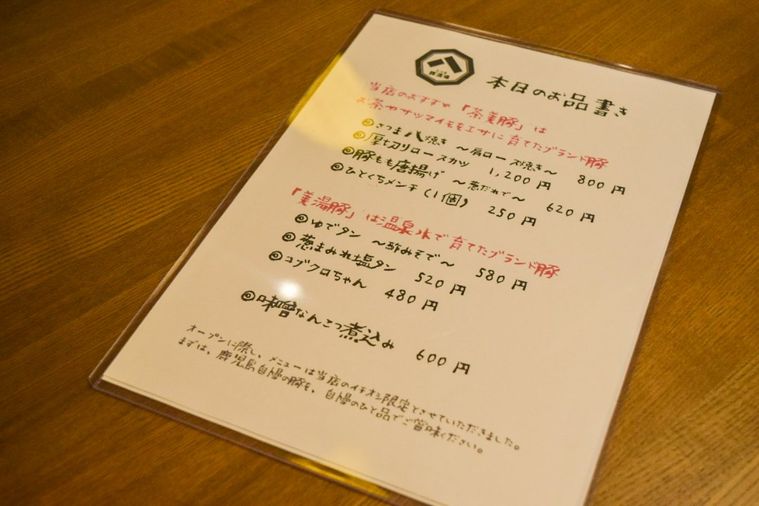 本日のお品書き
当店のおすすめ「茶美豚」は
お茶やサツマイモをエサに育てたブランド豚
さつま八焼き 〜肩ロース焼き〜 800円
厚切りロースカツ 1,200円
豚もも唐揚げ 〜葱だれで〜 620円
ひとくちメンチ(1個) 250円
「美湯豚」は温泉水で育てたブランド豚
ゆでタン 〜酢みそで〜 580円
葱まみれ塩タン 520円
コブクロちゃん 480円
味噌なんこつ煮込み 600円
オープンに際し、メニューは当店のイチオシ限定とさせていただきました。
まずは、鹿児島自慢の豚を、自慢のひと品でご賞味ください。